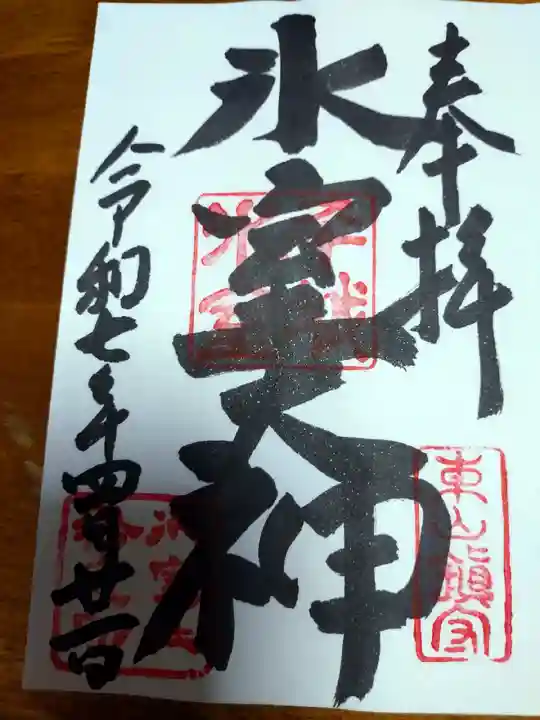 奉拝
東山鎮守
氷室大神
令和七年四月廿一日